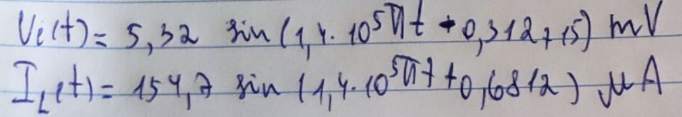 Ui(t) = 5,32 sin (1,4·10⁵πt + 0,312715) mV
IL(t) = 154,7 sin (1,4·10⁵πt + 0,6812) μA